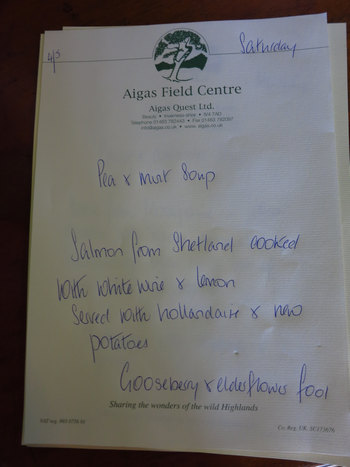 4/5
Saturday
Aigas Field Centre
Aigas Quest Ltd.
Beauly • Inverness-shire • IV4 7AD
Telephone 01463 782443 • Fax 01463 782097
info@aigas.co.uk • www.aigas.co.uk
Pea & mint Soup
Salmon from Shetland cooked
with white wine & lemon
Served with hollandaise & new
potatoes
Gooseberry & elderflower fool
Sharing the wonders of the wild Highlands
Co. Reg. UK. SC173676